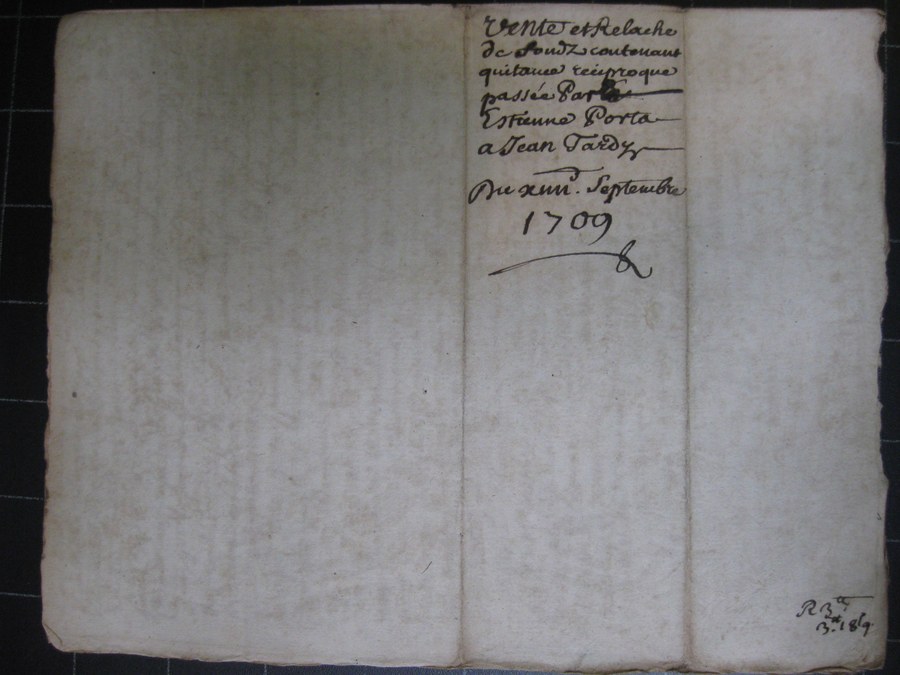 Vente et Relache
de fondz contenant
quitance reciproque
passée Par
Estienne Porta
a Jean Tardy
Du xiiii. Septembre
1709
R 3
3. 18